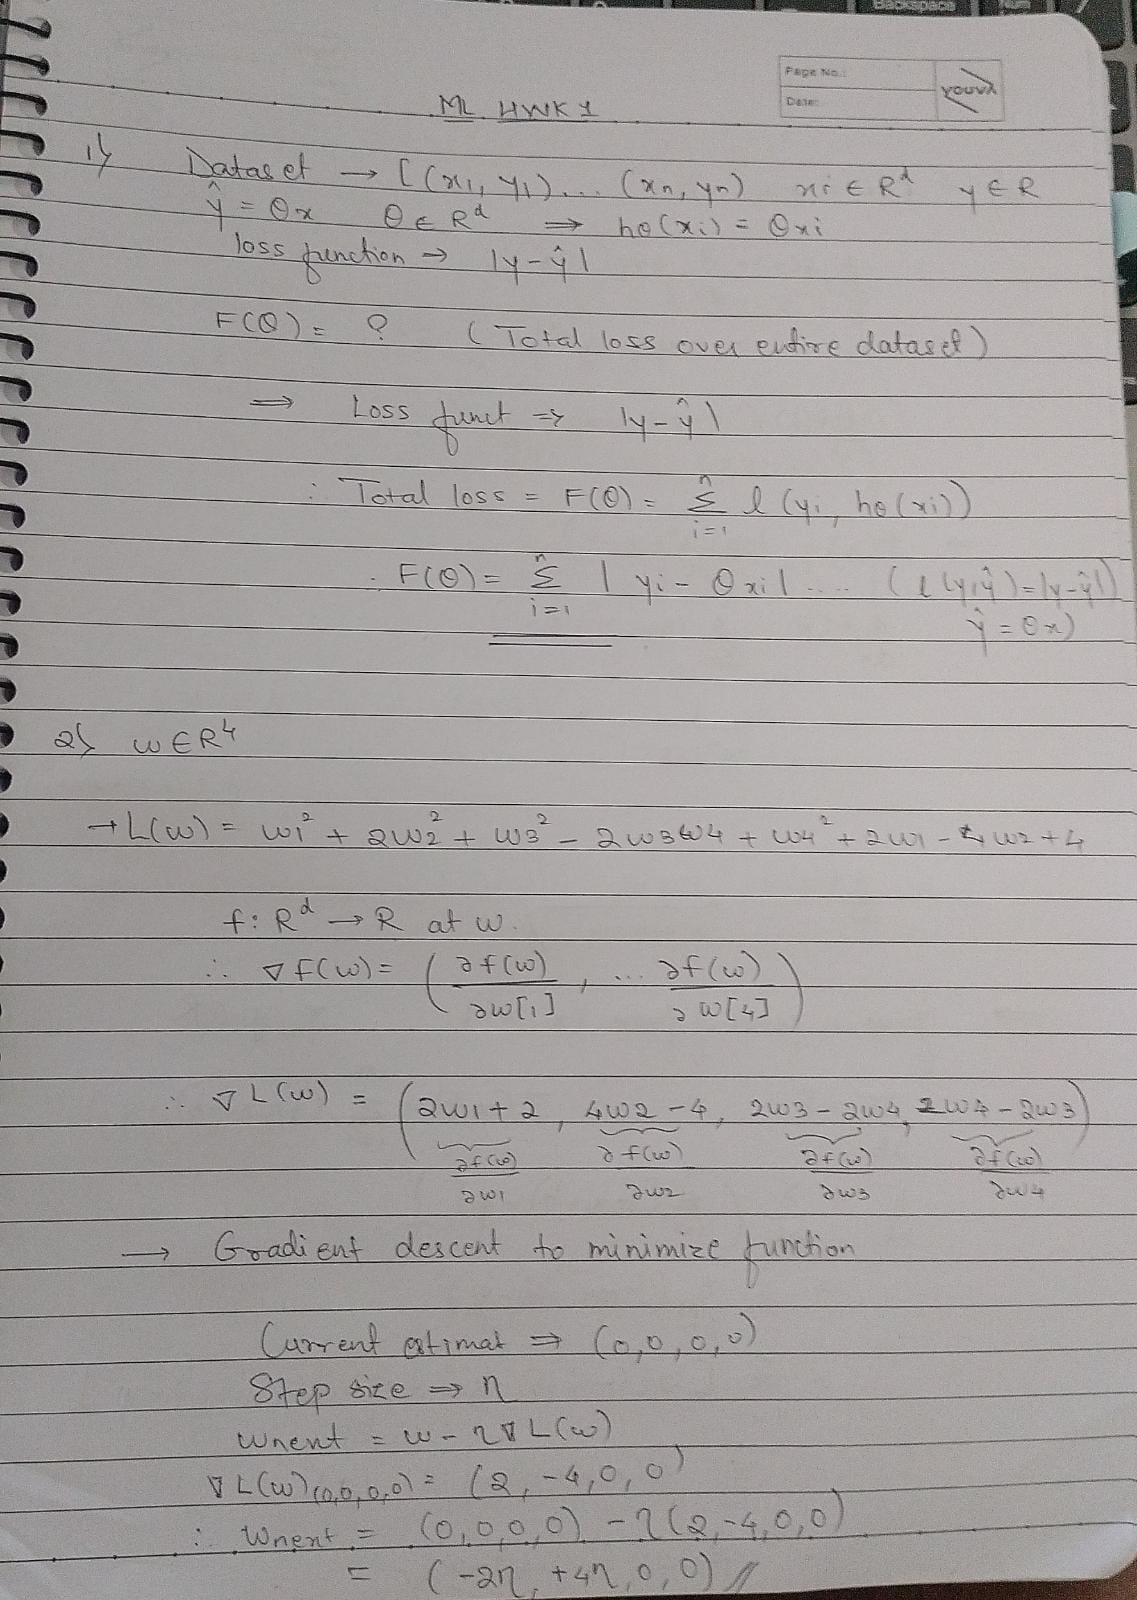 Backspace
Num
Page No.:
Date:
YOUVA
ML HWK 1
1) Dataset → [(x1, y1)... (xn, yn) xi ∈ R^d y ∈ R
ŷ = θx θ ∈ R^d ⇒ hθ(xi) = θxi
loss function → |y-ŷ|
F(θ) = ? (Total loss over entire dataset)
⇒ Loss funct ⇒ |y-ŷ|
∴ Total loss = F(θ) = Σ_{i=1}^{n} l(yi, hθ(xi))
∴ F(θ) = Σ_{i=1}^{n} | yi - θxi | .... (l(y,ŷ) = |y-ŷ|)
ŷ = θx)
2) w ∈ R^4
→ L(w) = w1² + 2w2² + w3² - 2w3w4 + w4² + 2w1 - 4w2 + 4
f: R^d → R at w.
∴ ∇f(w) = (∂f(w)/∂w[1], ... ∂f(w)/∂w[4])
∴ ∇L(w) = (2w1+2, 4w2-4, 2w3-2w4, 2w4-2w3)
∂f(w)/∂w1 ∂f(w)/∂w2 ∂f(w)/∂w3 ∂f(w)/∂w4
→ Gradient descent to minimize function
Current estimat ⇒ (0,0,0,0)
Step size ⇒ η
wnent = w - η∇L(w)
∇L(w)(0,0,0,0) = (2,-4,0,0)
∴ wnent = (0,0,0,0) - η(2,-4,0,0)
= (-2η, +4η, 0, 0) //